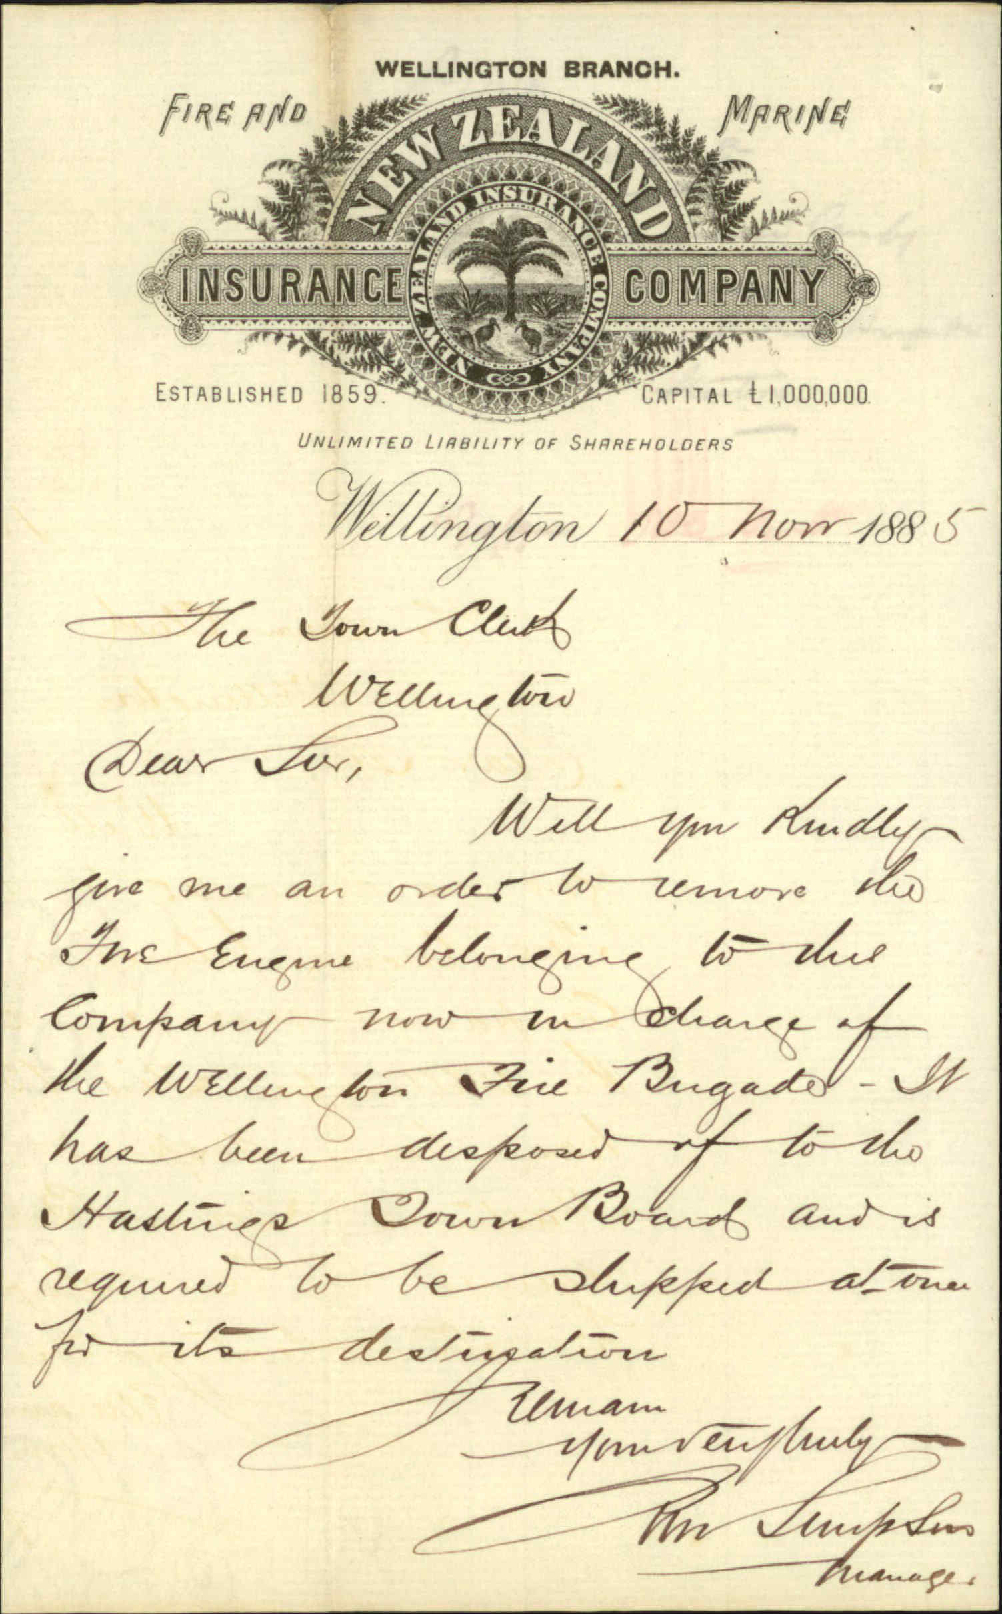 WELLINGTON BRANCH.
FIRE AND MARINE
NEW ZEALAND
NEW ZEALAND INSURANCE COMPANY
INSURANCE COMPANY
ESTABLISHED 1859. CAPITAL £1,000,000.
UNLIMITED LIABILITY OF SHAREHOLDERS
Wellington 10 Nov 1885
The Town Clerk
Wellington
Dear Sir,
Will you kindly
give me an order to remove the
Fire Engine belonging to this
Company now in charge of
the Wellington Fire Brigade - It
has been disposed of to the
Hastings Town Board and is
required to be shipped at once
for its destination
I remain
Yours very truly
Simpson
Manager